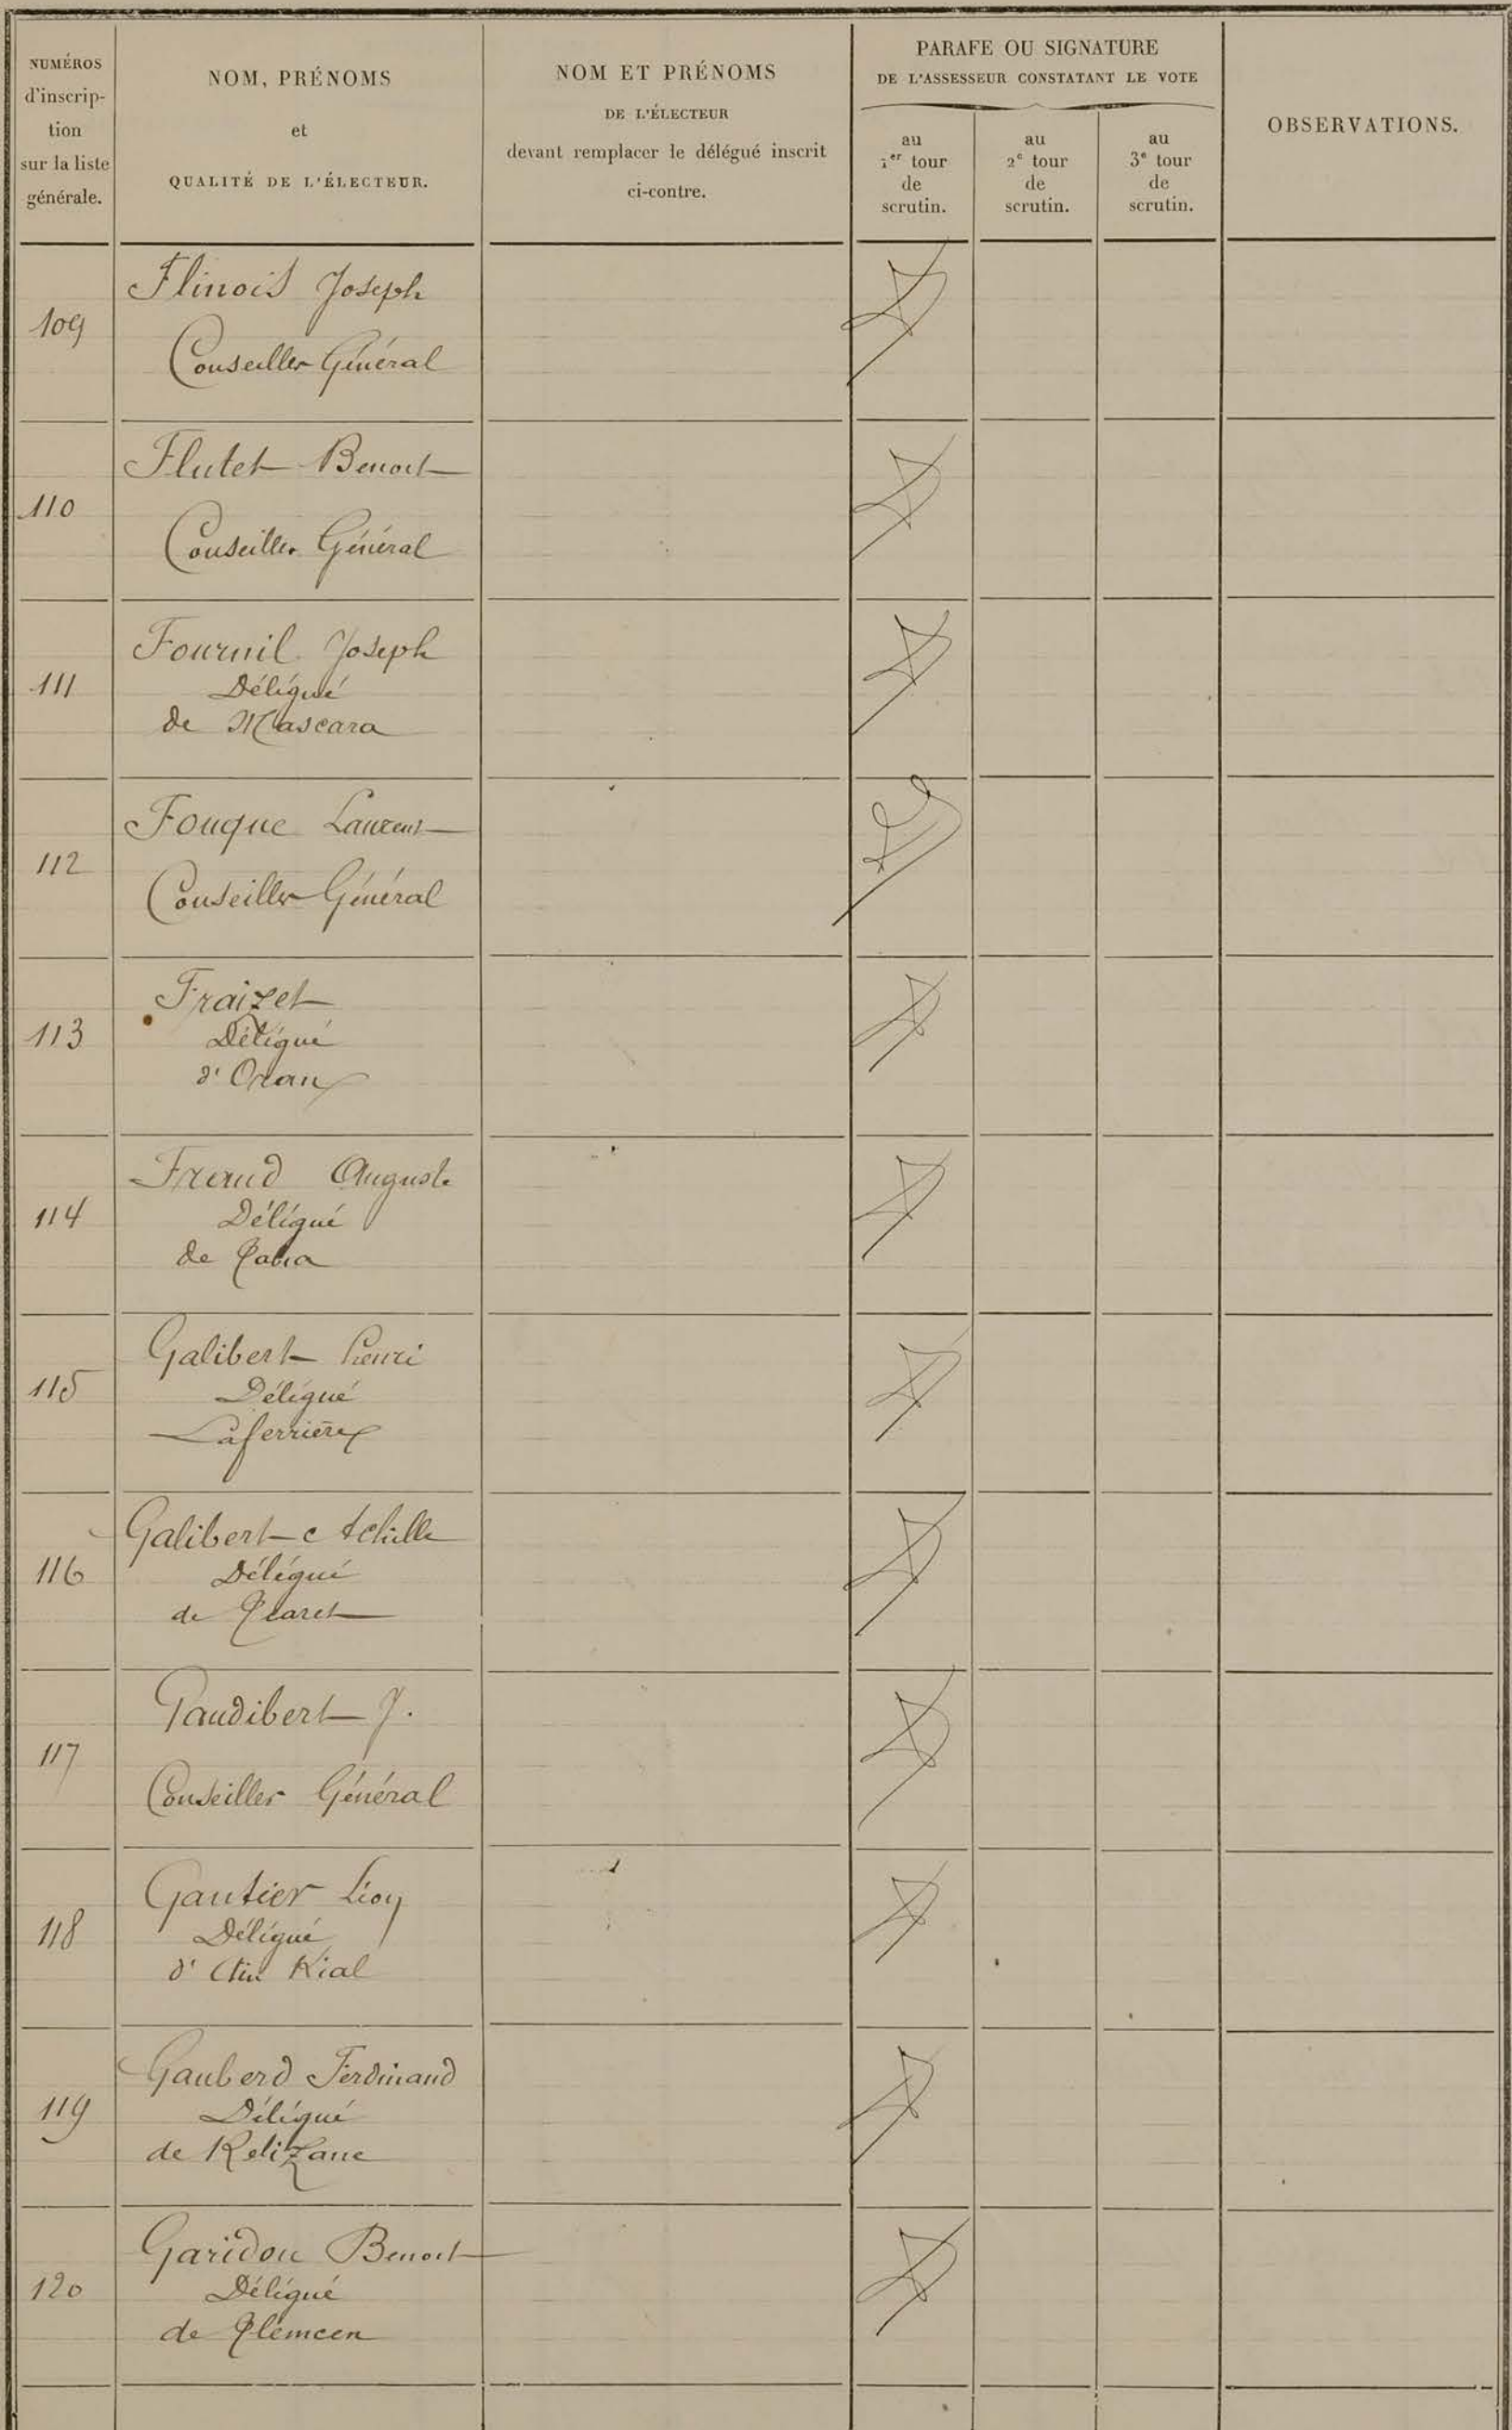 NUMÉROS
d'inscrip-
tion
sur la liste
générale.
NOM, PRÉNOMS
et
QUALITÉ DE L'ÉLECTEUR.
NOM ET PRÉNOMS
DE L'ÉLECTEUR
devant remplacer le délégué inscrit
ci-contre.
PARAFE OU SIGNATURE
DE L'ASSESSEUR CONSTATANT LE VOTE
au
1er tour
de
scrutin.
au
2e tour
de
scrutin.
au
3e tour
de
scrutin.
OBSERVATIONS.
109
Flinois Joseph
Conseiller Général
110
Flutet Benoit
Conseiller Général
111
Fournil Joseph
Délégué
de Mascara
112
Fouque Laurent
Conseiller Général
113
Fraizet
Délégué
d'Oran
114
Fraud Auguste
Délégué
de
115
Galibert Henri
Délégué
Laferrière
116
Galibert Achille
Délégué
de Tiaret
117
Gaudibert J.
Conseiller Général
118
Gautier Léon
Délégué
d'Aïn Kial
119
Gauberd Ferdinand
Délégué
de Relizane
120
Garidou Benoit
Délégué
de Tlemcen